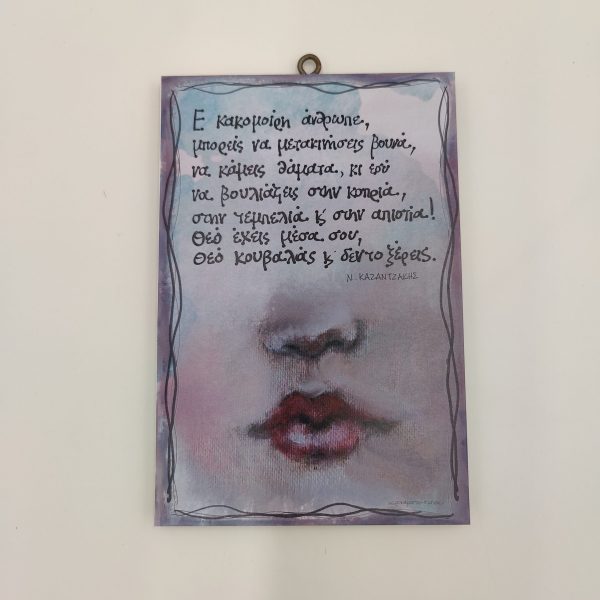 Ε κακομοίρη άνθρωπε,
μπορείς να μετακινήσεις βουνά,
να κάμεις θάματα, κι εσύ
να βουλιάζεις στην κοπριά,
στην τεμπελιά κ̓ στην απιστία!
Θεό έχεις μέσα σου,
Θεό κουβαλάς κ̓ δεν το ξέρεις.
Ν. ΚΑΖΑΝΤΖΑΚΗΣ